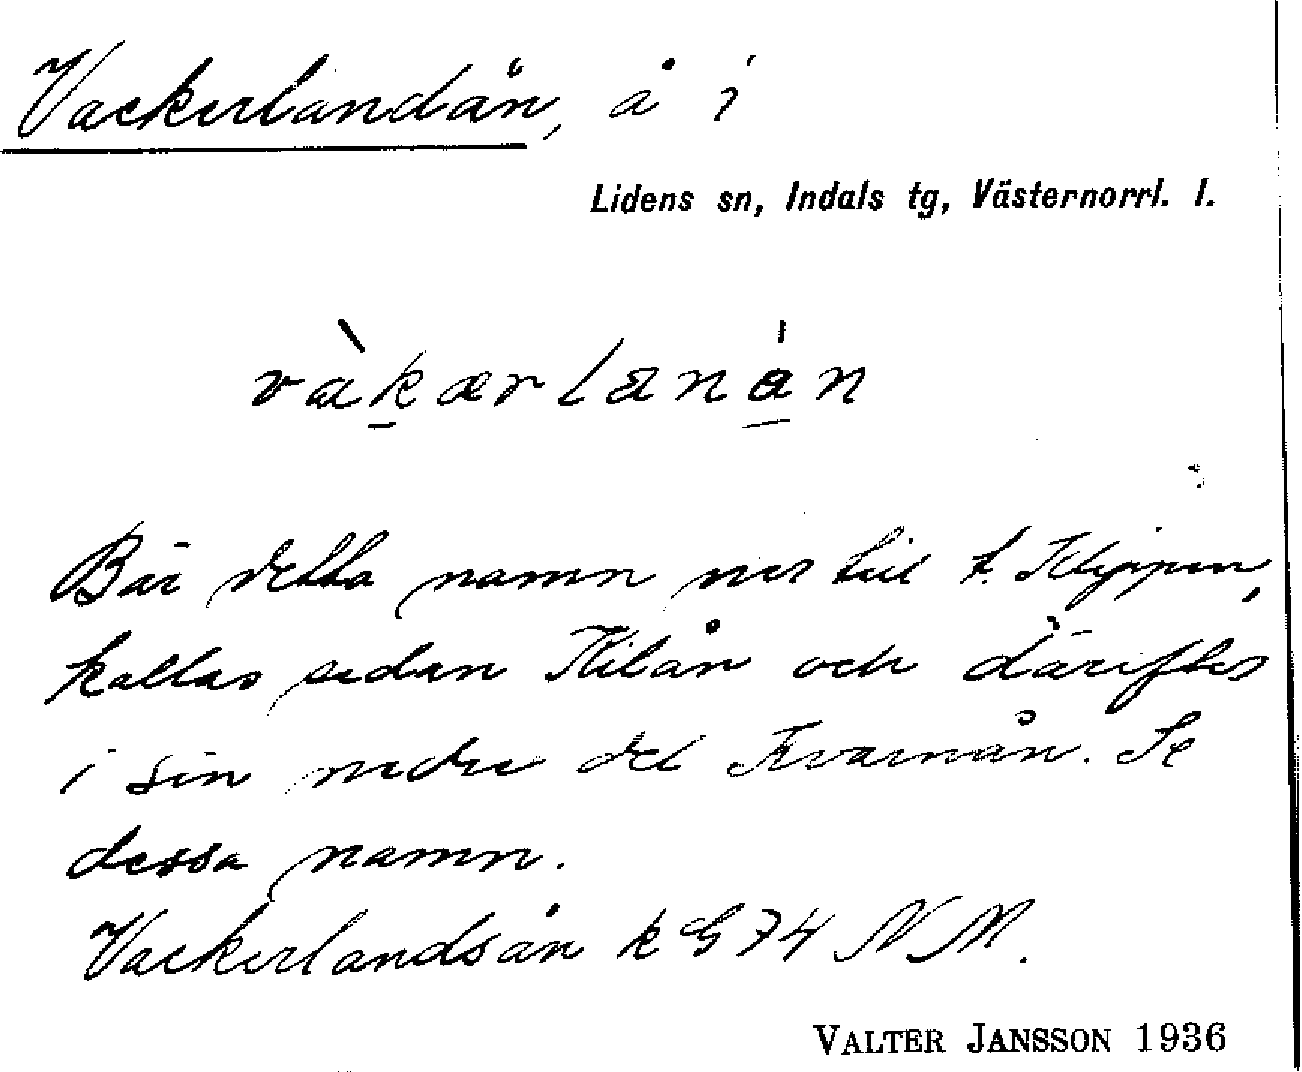 Vackerlandån, å i
Lidens sn, Indals tg, Västernorrl. l.
vàkærlanán
Bär detta namn ner till t. Klippen,
kallas sedan Kilån och därefter
i sin nedre del Kvarnån. Se
dessa namn.
Vackerlandsån k G 74 NM.
VALTER JANSSON 1936